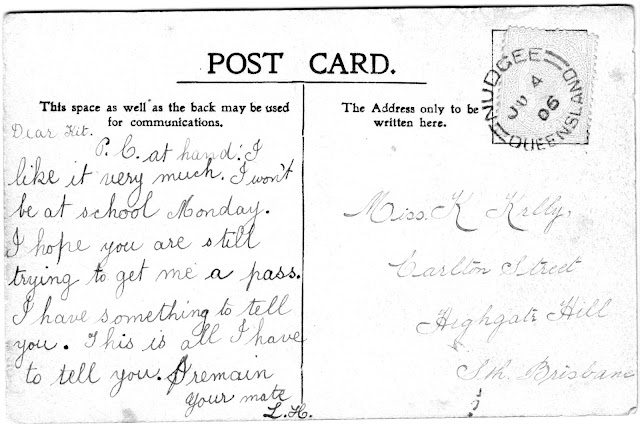 POST CARD.
This space as well as the back may be used
for communications.
The Address only to be
written here.
NUDGEE
JU 4
06
QUEENSLAND
Dear Kit.
P. C. at hand. I
like it very much. I won't
be at school Monday.
I hope you are still
trying to get me a pass.
I have something to tell
you. This is all I have
to tell you. I remain
your mate
L. H.
Miss. K Kelly,
Carlton Street
Highgate Hill
Sth. Brisbane